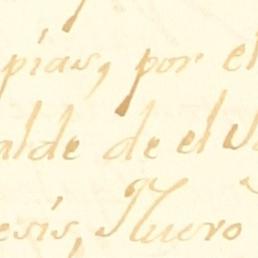 pias, por el
alde de el
esis, Nuevo